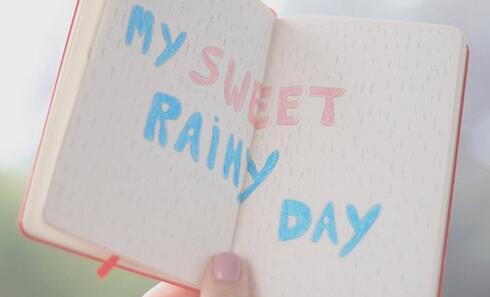 MY
SWEET
RAiNy
DAY